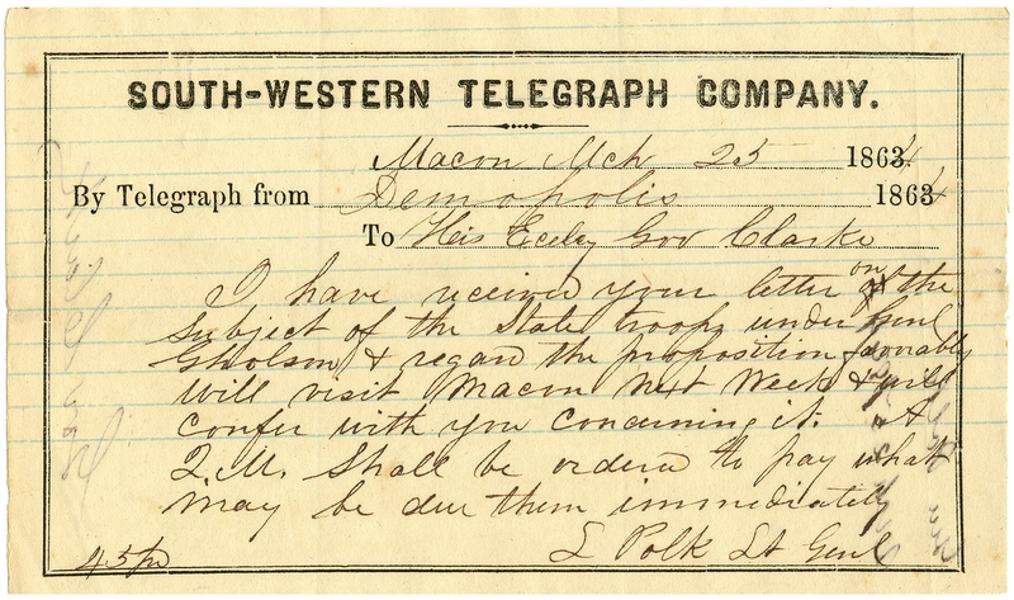 SOUTH-WESTERN TELEGRAPH COMPANY.
Macon Mch 25 1864
By Telegraph from Demopolis 1864
To His Ecely Gov Clarke
I have received your letter on the
subject of the State troops under Genl
Gholson & regard the proposition favorably
Will visit Macon next Week & will
confer with you concerning it. A
Q.M. Shall be ordered to pay what
may be due them immediately
L Polk Lt Genl
45 pr